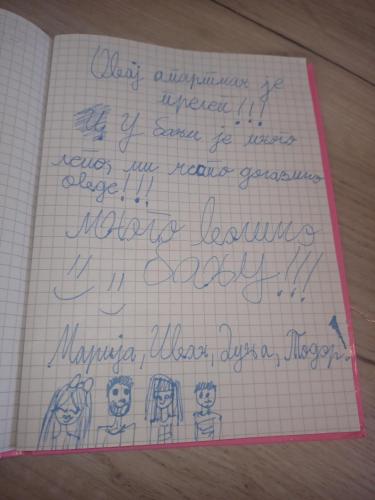 Овај апартман је
прелеп!!!
У бањи је много
лепо, ми често долазимо
овде!!!
Много волимо
бању!!!
Марија, Иван, Дуња, Тодор!